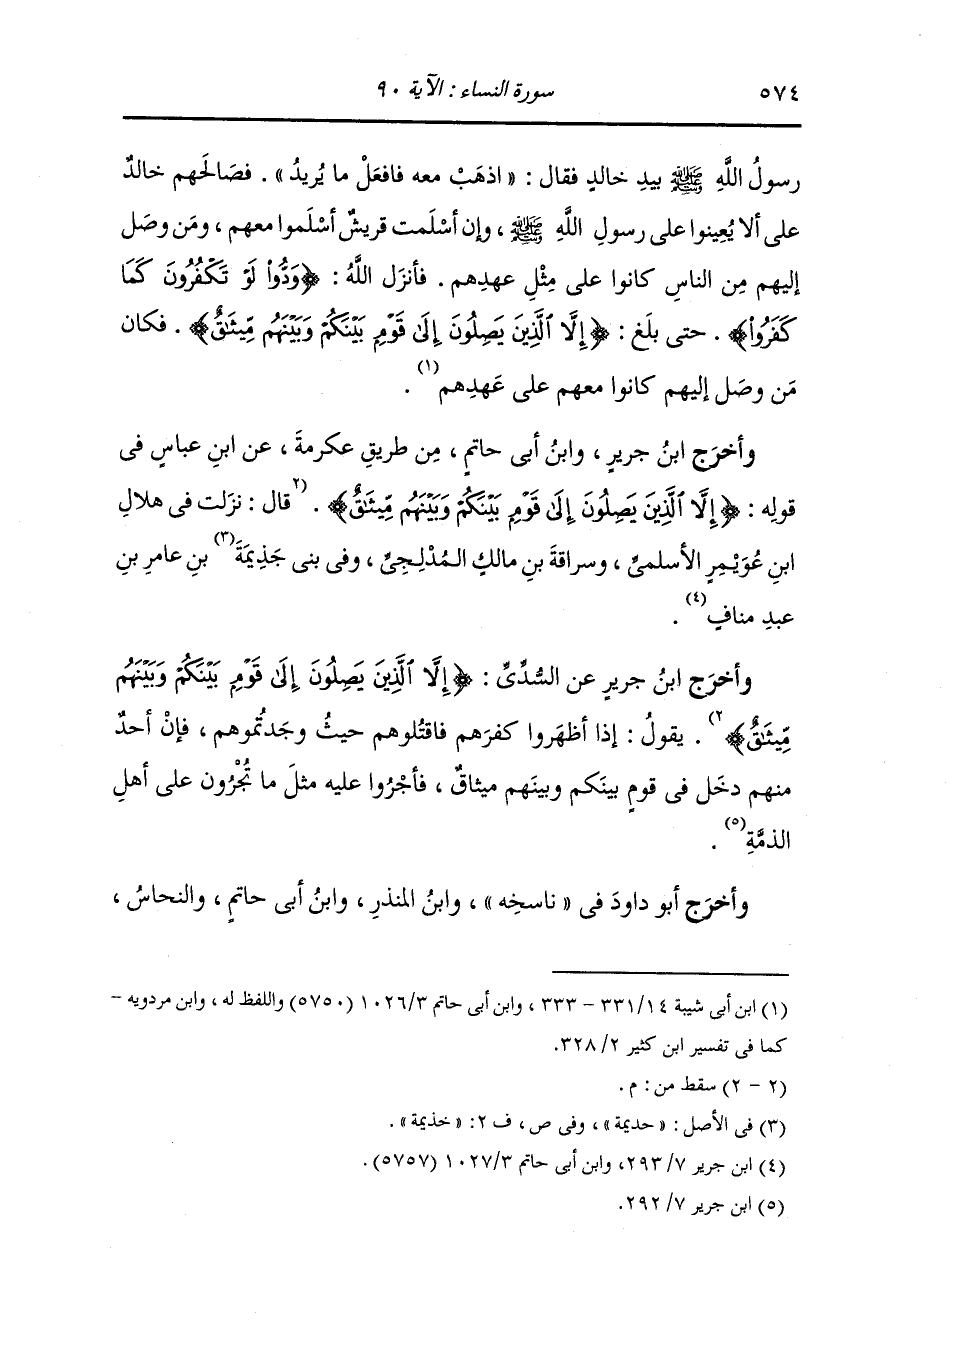 ٥٧٤ سورة النساء : الآية ٩٠
رسولُ اللَّهِ ﷺ بيدِ خالدٍ فقال : « اذهَبْ معه فافعَلْ ما يُريدُ » . فصَالَحهم خالدٌ
على ألا يُعِينوا على رسولِ اللَّهِ ﷺ ، وإن أسْلَمت قريشٌ أسْلَموا معهم ، ومَن وصَل
إليهم مِن الناسِ كانوا على مِثْلِ عهدِهم . فأنزَل اللَّهُ : ﴿وَدُّوا۟ لَوْ تَكْفُرُونَ كَمَا
كَفَرُوا۟﴾ . حتى بلَغ : ﴿إِلَّا ٱلَّذِينَ يَصِلُونَ إِلَىٰ قَوْمٍۭ بَيْنَكُمْ وَبَيْنَهُم مِّيثَٰقٌ﴾ . فكان
مَن وصَل إليهم كانوا معهم على عَهدِهم(١) .
وأخرَج ابنُ جريرٍ ، وابنُ أبى حاتمٍ ، مِن طريقِ عكرمةَ ، عن ابنِ عباسٍ فى
قولِه : ﴿إِلَّا ٱلَّذِينَ يَصِلُونَ إِلَىٰ قَوْمٍۭ بَيْنَكُمْ وَبَيْنَهُم مِّيثَٰقٌ﴾ . (٢قال : نزَلت فى هلالِ
ابنِ عُوَيْمِرٍ الأسلمىِّ ، وسراقةَ بنِ مالكٍ المُدْلِجِىِّ ، وفى بنى جَذِيمَةَ(٣) بنِ عامرِ بنِ
عبدِ منافٍ(٤) .
وأخرَج ابنُ جريرٍ عن السُّدِّىِّ : ﴿إِلَّا ٱلَّذِينَ يَصِلُونَ إِلَىٰ قَوْمٍۭ بَيْنَكُمْ وَبَيْنَهُم
مِّيثَٰقٌ﴾٢) . يقولُ : إذا أظهَروا كفرَهم فاقتُلوهم حيثُ وجَدتُموهم ، فإنْ أحدٌ
منهم دخَل فى قومٍ بينَكم وبينَهم ميثاقٌ ، فأجْرُوا عليه مثلَ ما تُجْرُون على أهلِ
الذمَّةِ(٥) .
وأخرَج أبو داودَ فى « ناسخِه » ، وابنُ المنذرِ ، وابنُ أبى حاتمٍ ، والنحاسُ ،
(١) ابن أبى شيبة ١٤/ ٣٣١ - ٣٣٣ ، وابن أبى حاتم ٣/ ١٠٢٦ (٥٧٥٠) واللفظ له ، وابن مردويه -
كما فى تفسير ابن كثير ٢/ ٣٢٨.
(٢ - ٢) سقط من : م .
(٣) فى الأصل : « حديمة » ، وفى ص ، ف ٢: « خذيمة » .
(٤) ابن جرير ٧/ ٢٩٣، وابن أبى حاتم ٣/ ١٠٢٧ (٥٧٥٧).
(٥) ابن جرير ٧/ ٢٩٢.